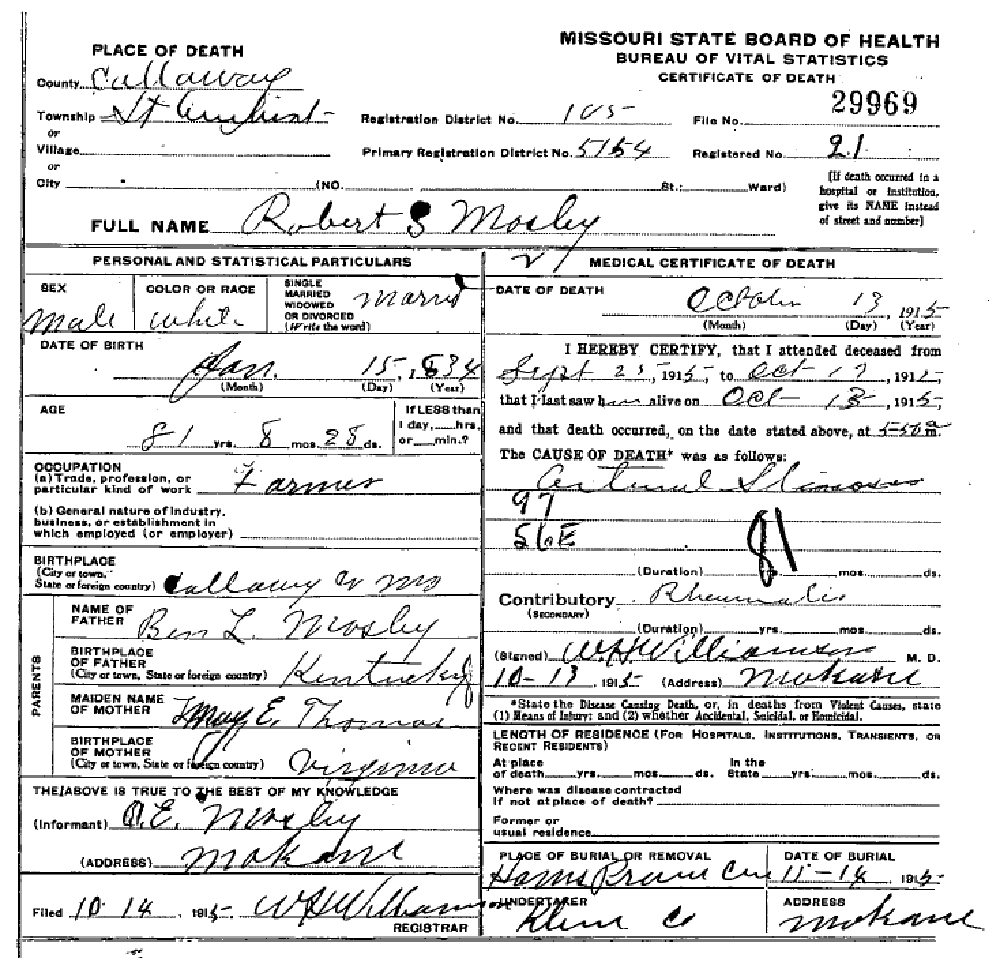 MISSOURI STATE BOARD OF HEALTH
BUREAU OF VITAL STATISTICS
CERTIFICATE OF DEATH
PLACE OF DEATH
County Callaway
Township St
or
Village
or
City (NO. St.; Ward)
Registration District No. 105
File No. 29969
Primary Registration District No. 5154
Registered No. 21
(If death occurred in a
hospital or institution,
give its NAME instead
of street and number)
FULL NAME Robert S Mosley
PERSONAL AND STATISTICAL PARTICULARS
SEX
Male
COLOR OR RACE
White
SINGLE
MARRIED
WIDOWED
OR DIVORCED
(Write the word)
Married
DATE OF BIRTH
Jan. 15, 1834
(Month) (Day) (Year)
AGE
81 yrs. 8 mos. 28 ds.
If LESS than
1 day, hrs.
or min.?
OCCUPATION
(a) Trade, profession, or
particular kind of work Farmer
(b) General nature of industry,
business, or establishment in
which employed (or employer)
BIRTHPLACE
(City or town,
State or foreign country) Callaway Co Mo
PARENTS
NAME OF
FATHER Ben L. Mosley
BIRTHPLACE
OF FATHER
(City or town, State or foreign country) Kentucky
MAIDEN NAME
OF MOTHER May E. Thomas
BIRTHPLACE
OF MOTHER
(City or town, State or foreign country) Virginia
THE ABOVE IS TRUE TO THE BEST OF MY KNOWLEDGE
(Informant) O.E. Mosley
(ADDRESS) Mokane
Filed 10 14, 1915 W H Williamson
REGISTRAR
MEDICAL CERTIFICATE OF DEATH
DATE OF DEATH
October 13, 1915
(Month) (Day) (Year)
I HEREBY CERTIFY, that I attended deceased from
Sept 23, 1915, to Oct 12, 1915,
that I last saw him alive on Oct 13, 1915,
and that death occurred, on the date stated above, at m.
The CAUSE OF DEATH* was as follows:
97
56E
81
(Duration) yrs. mos. ds.
Contributory
(SECONDARY)
(Duration) yrs. mos. ds.
(Signed) W H Williamson M. D.
10-13, 1915 (Address) Mokane
*State the Disease Causing Death, or, in deaths from Violent Causes, state
(1) Means of Injury; and (2) whether Accidental, Suicidal, or Homicidal.
LENGTH OF RESIDENCE (FOR HOSPITALS, INSTITUTIONS, TRANSIENTS, OR
RECENT RESIDENTS)
At place
of death yrs. mos. ds.
In the
State yrs. mos. ds.
Where was disease contracted
if not at place of death?
Former or
usual residence
PLACE OF BURIAL OR REMOVAL
Hams Prairie Cem
DATE OF BURIAL
11-14 1915
UNDERTAKER
Klein Co
ADDRESS
Mokane